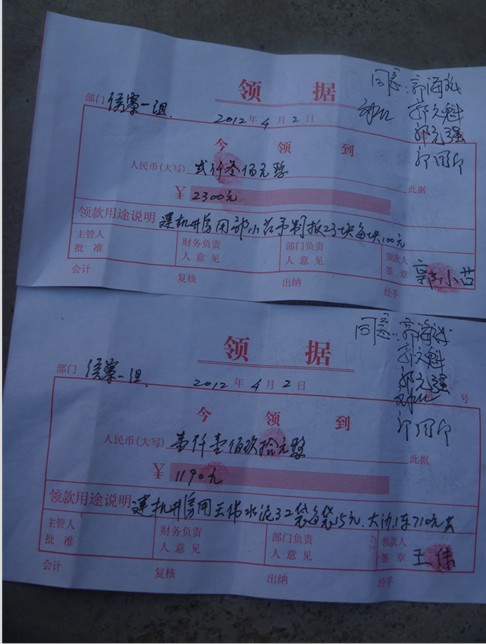 领 据
同意 郭海水
郭文科
郭文强
部门 侯寨一组
2012年4月2日
今 领 到
人民币(大写) 贰仟叁佰元整 此据
¥ 2300元
领款用途说明 建机井房用郭小苫予制板23块每块100元
主管人 财务负责 部门负责 领款人
批 准 人 意 见 人 意 见 签 章 郭小苫
会计 复核 出纳 经手
领 据
同意 郭海水
郭文科
郭文强
部门 侯寨一组 号
2012年4月2日
今 领 到
人民币(大写) 壹仟壹佰玖拾元整 此据
¥ 1190元
领款用途说明 建机井房用王伟水泥32袋每袋15元,大沙1车710元
主管人 财务负责 部门负责 领款人
批 准 人 意 见 人 意 见 签 章 王伟
会计 复核 出纳 经手